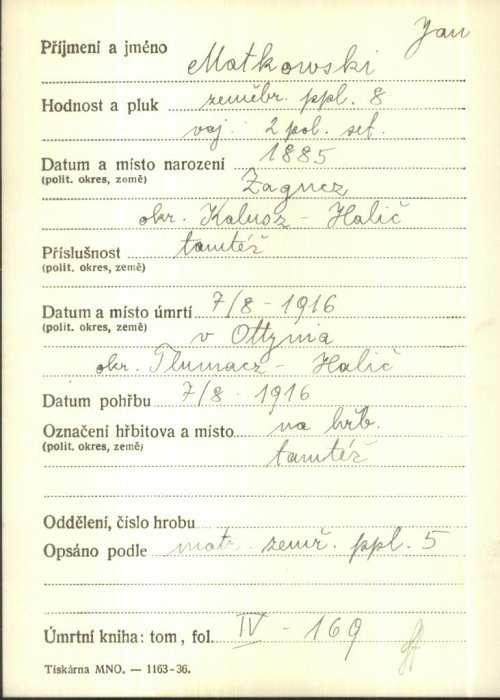 Jan
Příjmení a jméno Matkowski
Hodnost a pluk zeměbr. ppl. 8
voj. 2 pol. set.
Datum a místo narození 1885
(polit. okres, země) Zagucz
okr. Kalusz - Halič
Příslušnost tamtéž
(polit. okres, země)
Datum a místo úmrtí 7/8 - 1916
(polit. okres, země) v Ottynia
okr. Tlumacz - Halič
Datum pohřbu 7/8 - 1916
Označení hřbitova a místo na hřb.
(polit. okres, země) tamtéž
Oddělení, číslo hrobu
Opsáno podle matr. zemř. ppl. 5
Úmrtní kniha: tom, fol. IV - 169
Tiskárna MNO. — 1163-36.